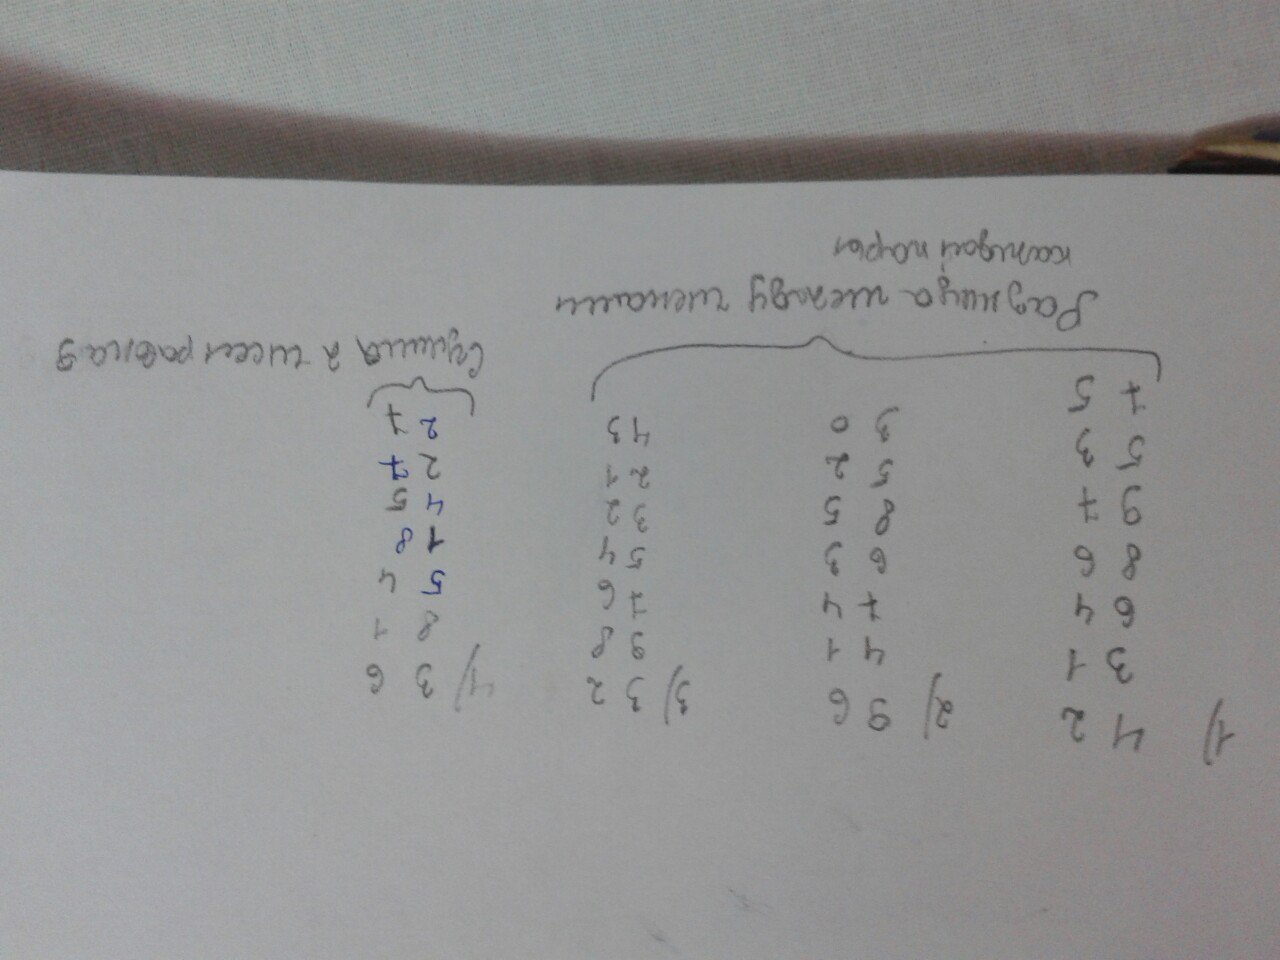 1) 4 2
3 1
6 4
8 6
9 7
5 3
7 5
2) 9 6
4 1
7 4
6 3
8 5
5 2
3 0
3) 3 2
9 8
7 6
5 4
3 2
2 1
4 3
Разница между числами
каждой пары
4) 3 6
8 1
5 4
1 8
4 5
2 7
2 7
Сумма 2 чисел равна 9